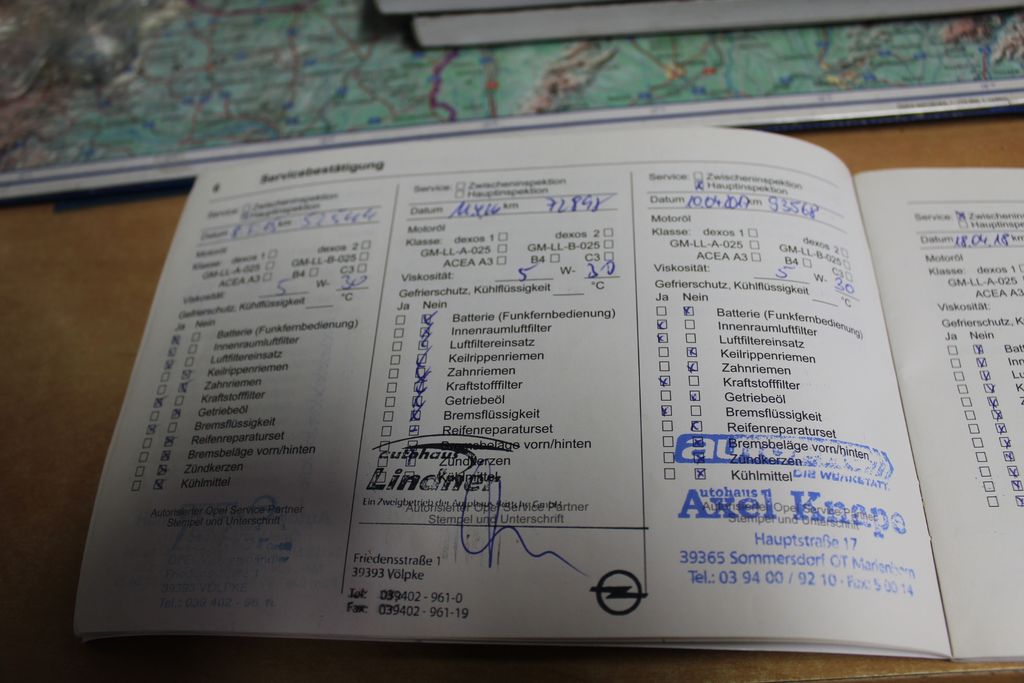 6 Servicebestätigung
Service: Zwischeninspektion
Hauptinspektion
Datum km
Motoröl
Klasse: dexos 1 dexos 2
GM-LL-A-025 GM-LL-B-025
ACEA A3 B4 C3
Viskosität: 5 W- 30
Gefrierschutz, Kühlflüssigkeit °C
Ja Nein
Batterie (Funkfernbedienung)
Innenraumluftfilter
Luftfiltereinsatz
Keilrippenriemen
Zahnriemen
Kraftstofffilter
Getriebeöl
Bremsflüssigkeit
Reifenreparaturset
Bremsbeläge vorn/hinten
Zündkerzen
Kühlmittel
Autorisierter Opel Service Partner
Stempel und Unterschrift
39393 VÖLPKE
Service: Zwischeninspektion
Hauptinspektion
Datum km 72898
Motoröl
Klasse: dexos 1 dexos 2
GM-LL-A-025 GM-LL-B-025
ACEA A3 B4 C3
Viskosität: 5 W- 30
Gefrierschutz, Kühlflüssigkeit °C
Ja Nein
Batterie (Funkfernbedienung)
Innenraumluftfilter
Luftfiltereinsatz
Keilrippenriemen
Zahnriemen
Kraftstofffilter
Getriebeöl
Bremsflüssigkeit
Reifenreparaturset
Bremsbeläge vorn/hinten
Zündkerzen
Kühlmittel
Autohaus
Lindner
Autorisierter Opel Service Partner
Stempel und Unterschrift
Friedensstraße 1
39393 Völpke
Tel: 039402 - 961-0
Fax: 039402 - 961-19
Service: Zwischeninspektion
Hauptinspektion
Datum 10.04.2017 km 93568
Motoröl
Klasse: dexos 1 dexos 2
GM-LL-A-025 GM-LL-B-025
ACEA A3 B4 C3
Viskosität: 5 W- 30
Gefrierschutz, Kühlflüssigkeit °C
Ja Nein
Batterie (Funkfernbedienung)
Innenraumluftfilter
Luftfiltereinsatz
Keilrippenriemen
Zahnriemen
Kraftstofffilter
Getriebeöl
Bremsflüssigkeit
Reifenreparaturset
Bremsbeläge vorn/hinten
Zündkerzen
Kühlmittel
DIE WERKSTATT
Autohaus
Axel Knappe
Autorisierter Opel Service Partner
Stempel und Unterschrift
Hauptstraße 17
39365 Sommersdorf OT Marienborn
Tel.: 03 94 00 / 92 10 · Fax: 5 00 14
Service: Zwischenin
Hauptinspe
Datum 18.04.18 km
Motoröl
Klasse: dexos 1
GM-LL-A-025
ACEA A3
Viskosität:
Gefrierschutz, K
Ja Nein
Bat
Inn
Lu
K
Z